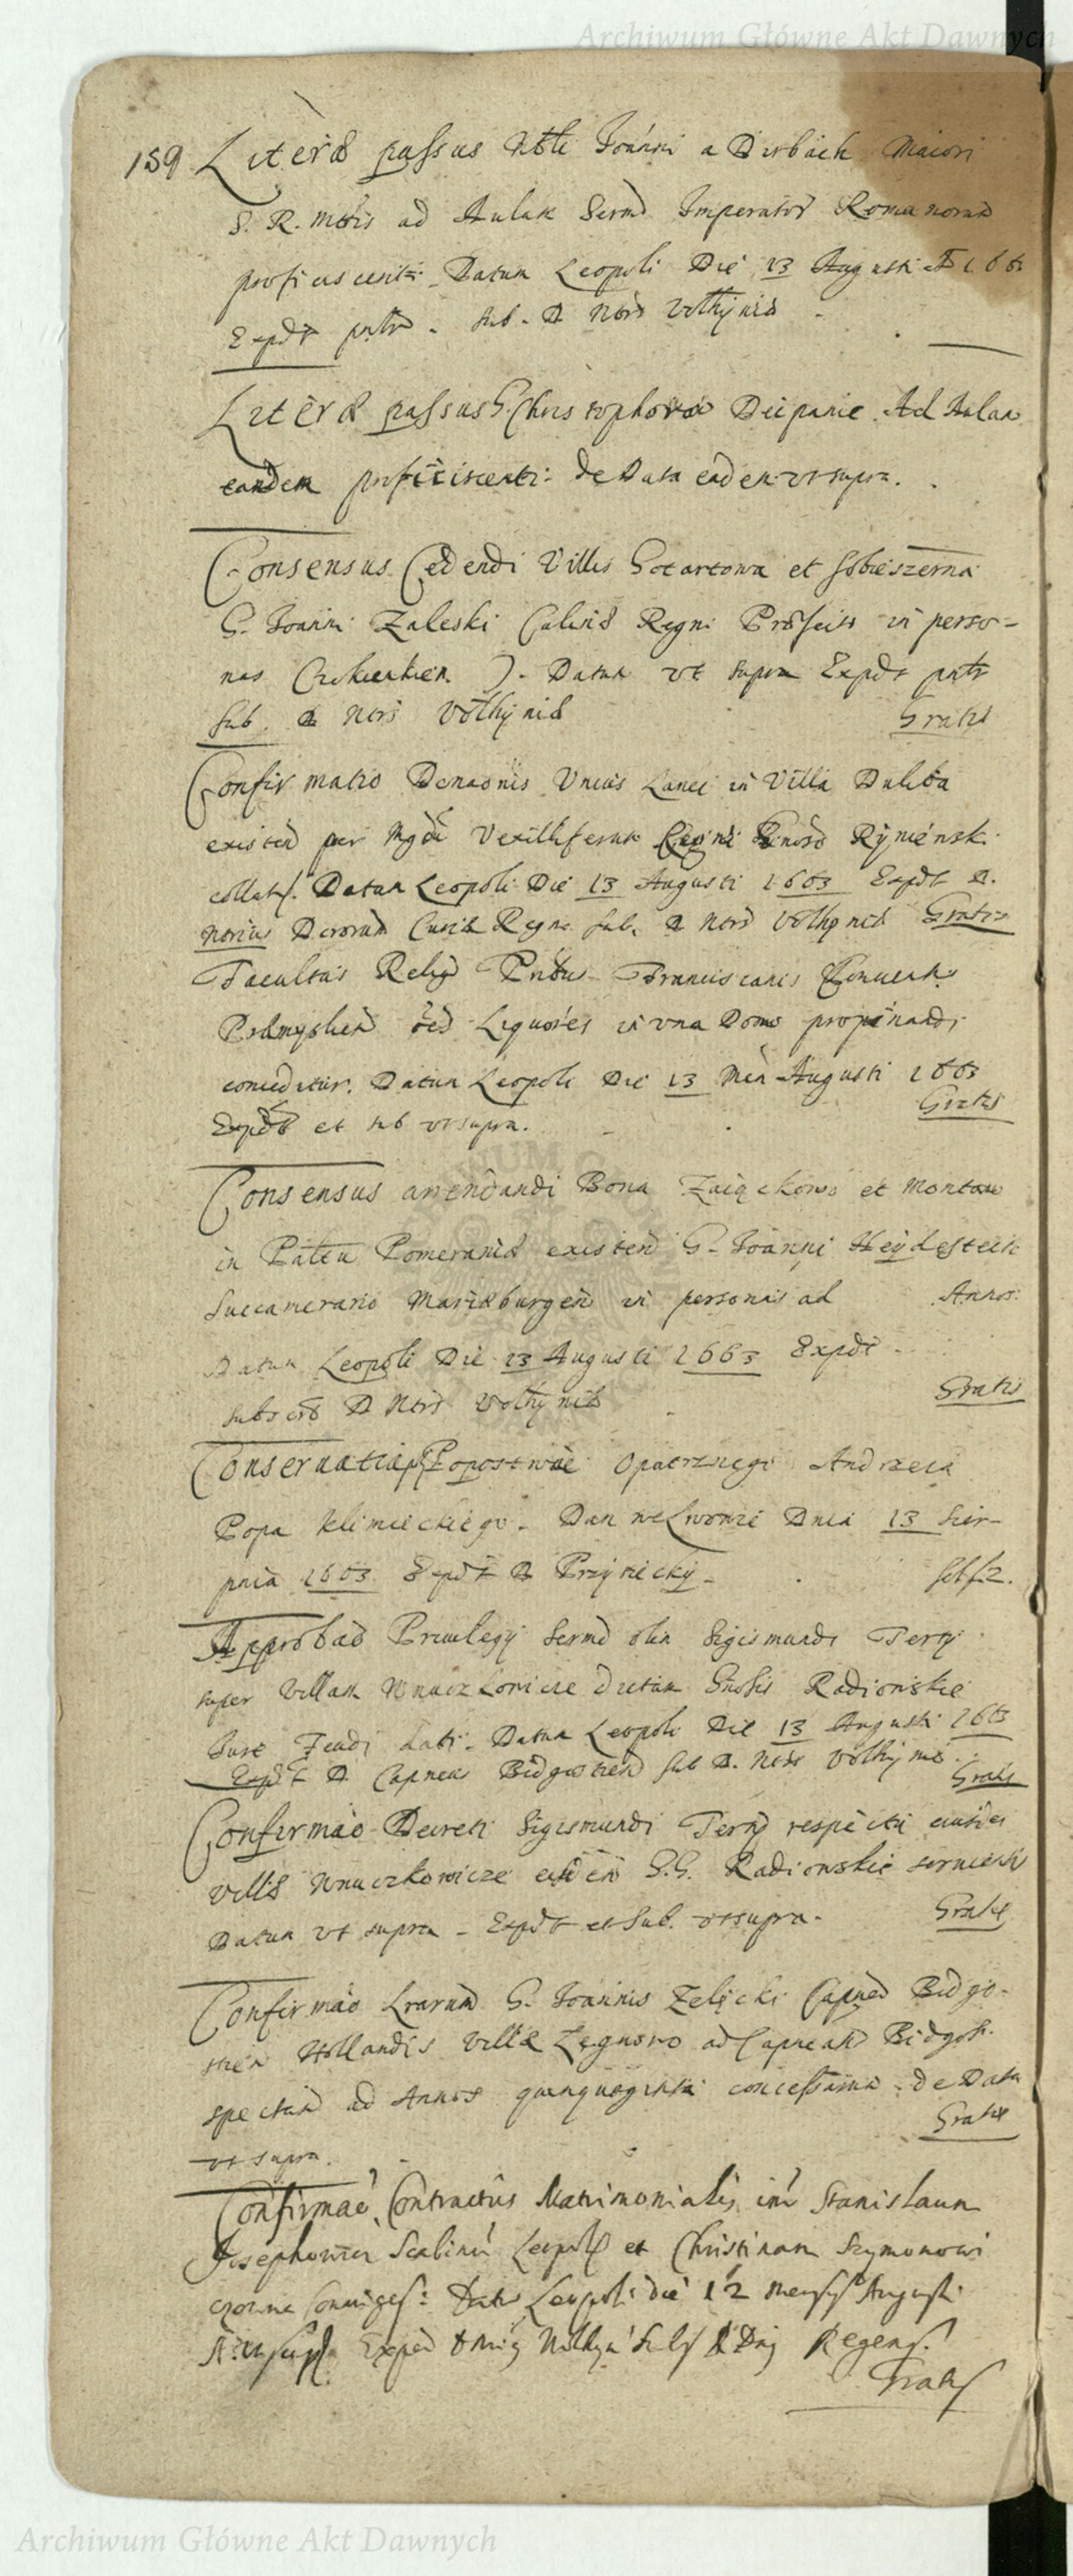 Archiwum Główne Akt Dawnych
159 Literæ passus Nobli Joánni a Dirbach Maiori
S. R. Mttis ad Aulam Sermi Imperator Romanorum
proficiscenti. Datum Leopoli Die 13 Augusti
Expdt pntr. sub. D Nors Volhyniæ
Literæ passus G. Christophoro Ad Aulam
eandem proficiscenti: de Data eadem vt supra.
Consensus Cedendi Villis Gotartowa et Sobieszerna
G. Joanni Zaleski Regni in perso-
nas ). Datum vt supra Expdt pntr
Sub. D Nors Volhyniæ Gratis
Confirmatio Donaonis Vnius Lanei in Villa Duliba
existen per Mgcu Vexilliferum Regni
collat. Datum Leopoli Die 13 Augusti 1663 Expdt D.
Decretorum Curiæ Regni sub. D Nors Volhyniæ Gratis
Facultas Relig Franciscanis
Liquores in vna Domo propinandi
conceditur. Datum Leopoli Die 13 Men Augusti 1663
Gratis
Expdt et sub vt supra.
Consensus arrendandi Bona Zaiączkowo et Montow
in Pomeraniæ existen G. Joanni Heydestein
Succamerario Marieburgen in personas ad Annos
Datum Leopoli Die 13 Augusti 1663 Expdt
Gratis
subscrb D Nors Volhyniæ
Conseruatia Popostwie Andrzeia
Popa Klimieckiego. Dan we Lwowie Dnia 13 Sier-
pnia 1663 Expdt D
Approbao Priuilegij Sermi olim Sigismundi Tertij
super Villam Wnuczkowicze dictam Gnosis Radionskie
Jure Feudi dati. Datum Leopoli Die 13 Augusti 1663
Expdt D. Capnea Bidgostien sub D. Nors Volhyniæ.
Gratis
Confirmao Decreti Sigismundi Tertij respectu eiusdem
villæ Wnuczkowicze G.G. Radionskie seruient
Datum vt supra - Expdt et Sub. vt supra. Gratis
Confirmao Lrarum G. Joannis Zelęcki Capnei Bidgo-
stien Hollandis villæ Łęgnowo ad Capneam Bidgost.
spectan ad Annos quinquaginta concessarum. de Data
Gratis
vt supra.
Confirmao Contractus Matrimonialis int Stanislaum
Scabinu Leopol et Christinam Szymonowi
czowna coniuges: Datu Leopoli die 12 mensis Augusti
Regens.
Gratis
Archiwum Główne Akt Dawnych